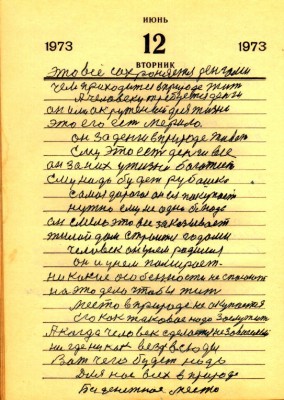 ИЮНЬ
1973 12 1973
ВТОРНИК
это всё сохроняется деньгами
чем приходится в природе жит
А человеку требуется деньги
он ими окружений для жизнь
это его ест мерило
он за деньги в природе живет
ему это ест деньги все
он за них у жизни богатеет
ему надь будет рубашка
самая дорогая он ея покупает
нужно ему не одно надо
он смело это все заказывает
жилой дом строит годами
человек он у нем родился
он и у нем помирает
никакие особенности не
на это дело чтобы жит
место в природе не окупается
но как таковое надо заслужит
А когда человек сделает
ни где никак везде всюды
Вот чего будет надь
Для нас всех в природе
место